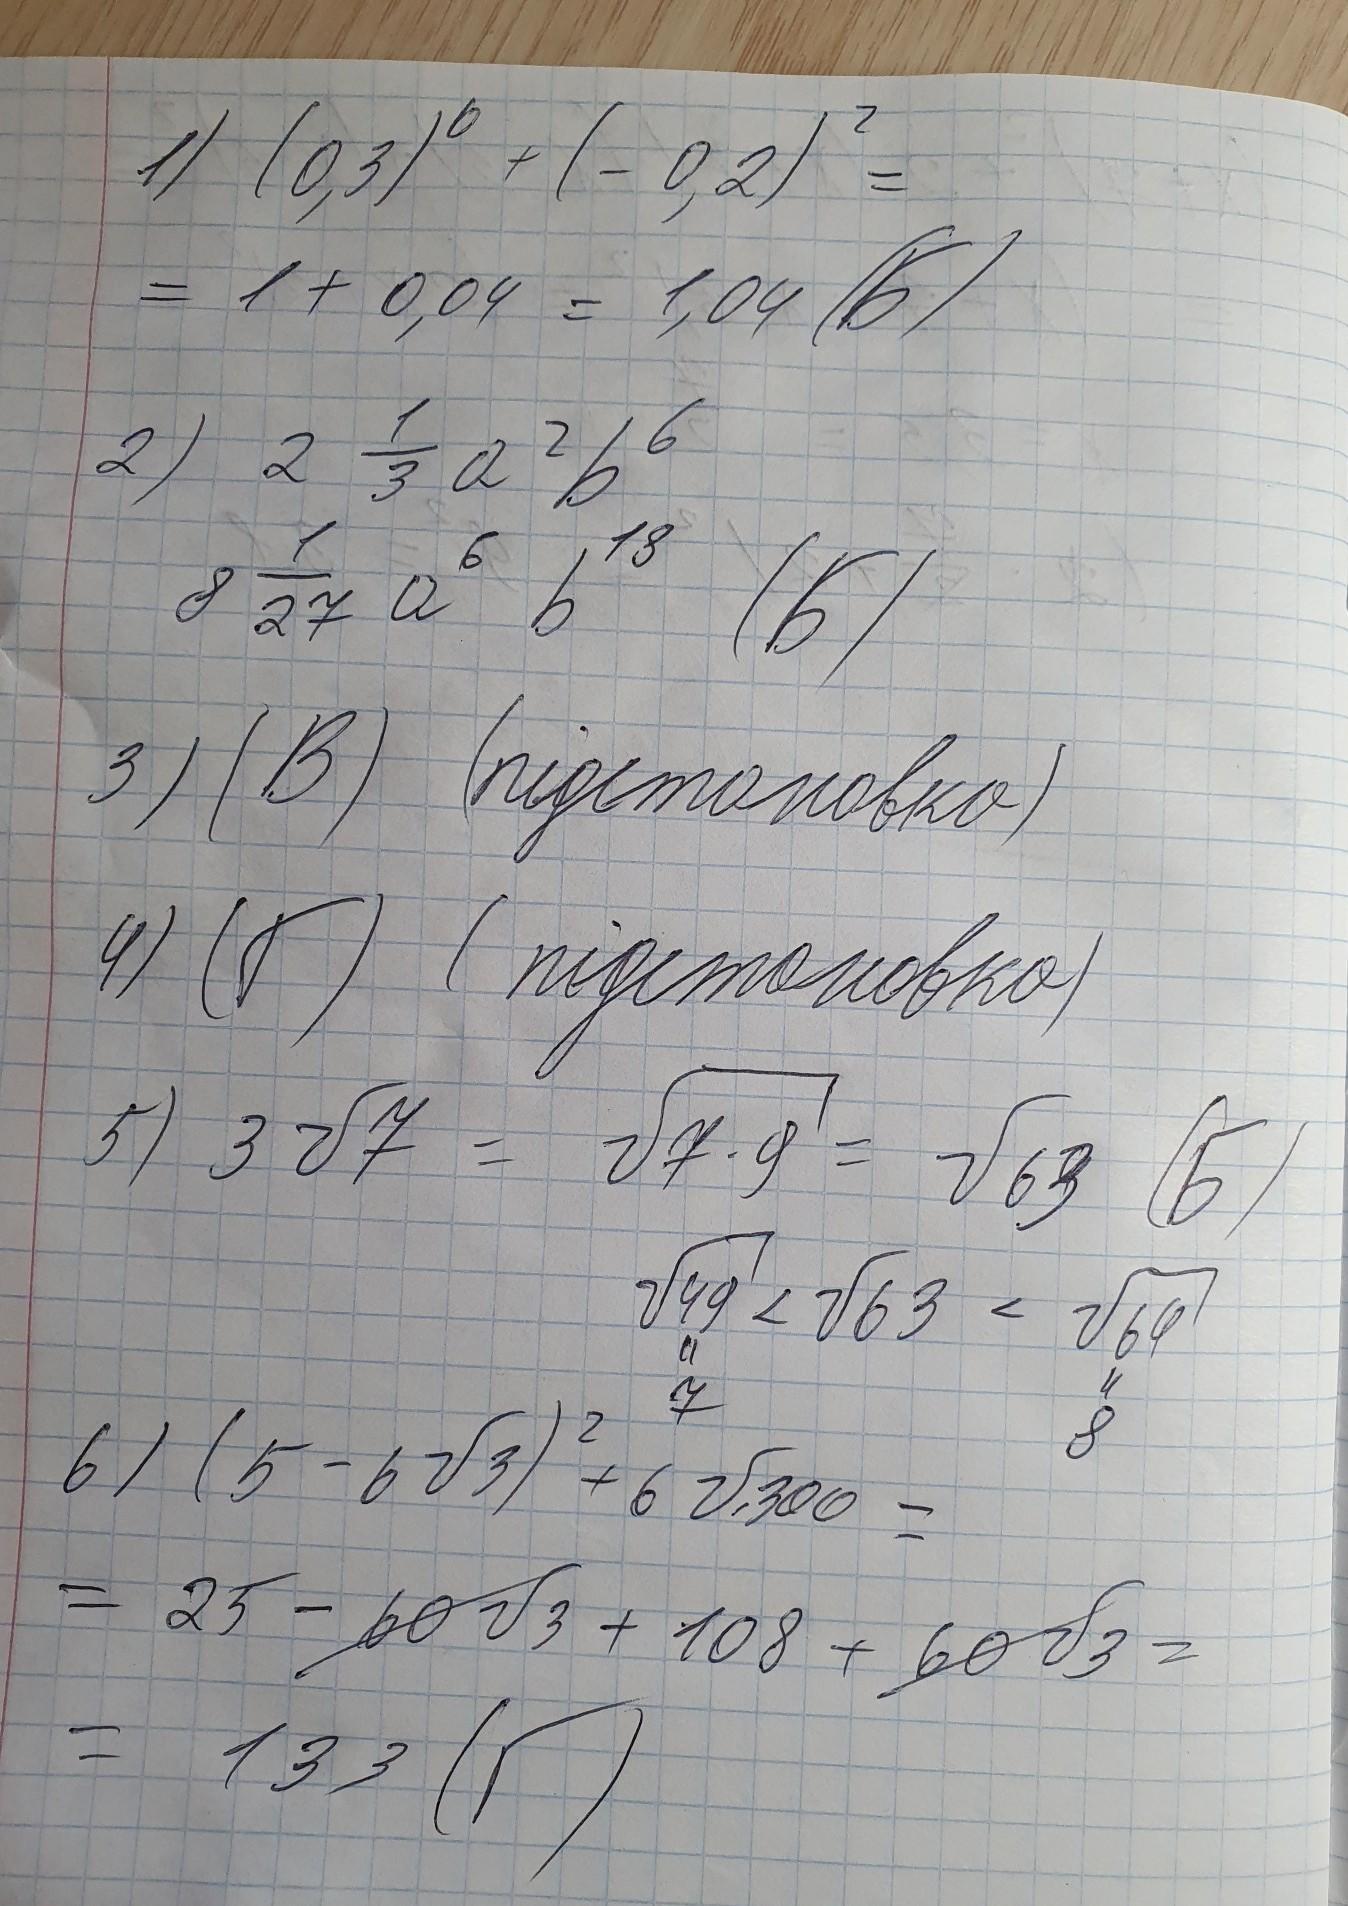 1) (0,3)⁰ + (-0,2)² =
= 1 + 0,04 = 1,04 (Б)
2) 2 1/3 a²b⁶
8 1/27 a⁶ b¹⁸ (Б)
3) (В) (підстановка)
4) (Г) (підстановка)
5) 3√7 = √7·9 = √63 (Б)
√49 < √63 < √64
" "
7 8
6) (5 - 6√3)² + 6√300 =
= 25 - 60√3 + 108 + 60√3 =
= 133 (Г)